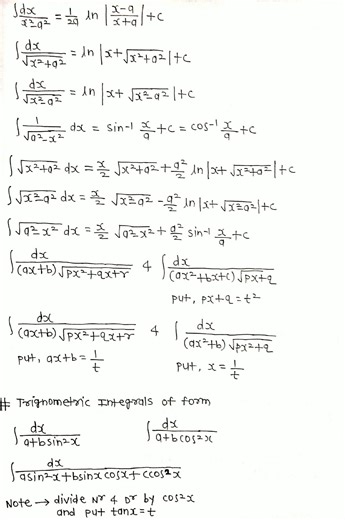 ∫ dx/(x²-a²) = 1/2a ln |x-a/x+a| + c
∫ dx/√(x²+a²) = ln |x+√(x²+a²)| + c
∫ dx/√(x²-a²) = ln |x+√(x²-a²)| + c
∫ 1/√(a²-x²) dx = sin⁻¹ x/a + c = cos⁻¹ x/a + c
∫ √(x²+a²) dx = x/2 √(x²+a²) + a²/2 ln |x+√(x²+a²)| + c
∫ √(x²-a²) dx = x/2 √(x²-a²) - a²/2 ln |x+√(x²-a²)| + c
∫ √(a²-x²) dx = x/2 √(a²-x²) + a²/2 sin⁻¹ x/a + c
∫ dx/((ax+b)√(px²+qx+r)) & ∫ dx/((ax²+bx+c)√(px+q))
put, px+q = t²
∫ dx/((ax+b)√(px²+qx+r)) & ∫ dx/((ax²+b)√(px²+q))
put, ax+b = 1/t put, x = 1/t
# Trignometric Integrals of form
∫ dx/(a+bsin²x) ∫ dx/(a+bcos²x)
∫ dx/(asin²x+bsinxcosx+ccos²x)
Note → divide Nr & Dr by cos²x
and put tanx = t